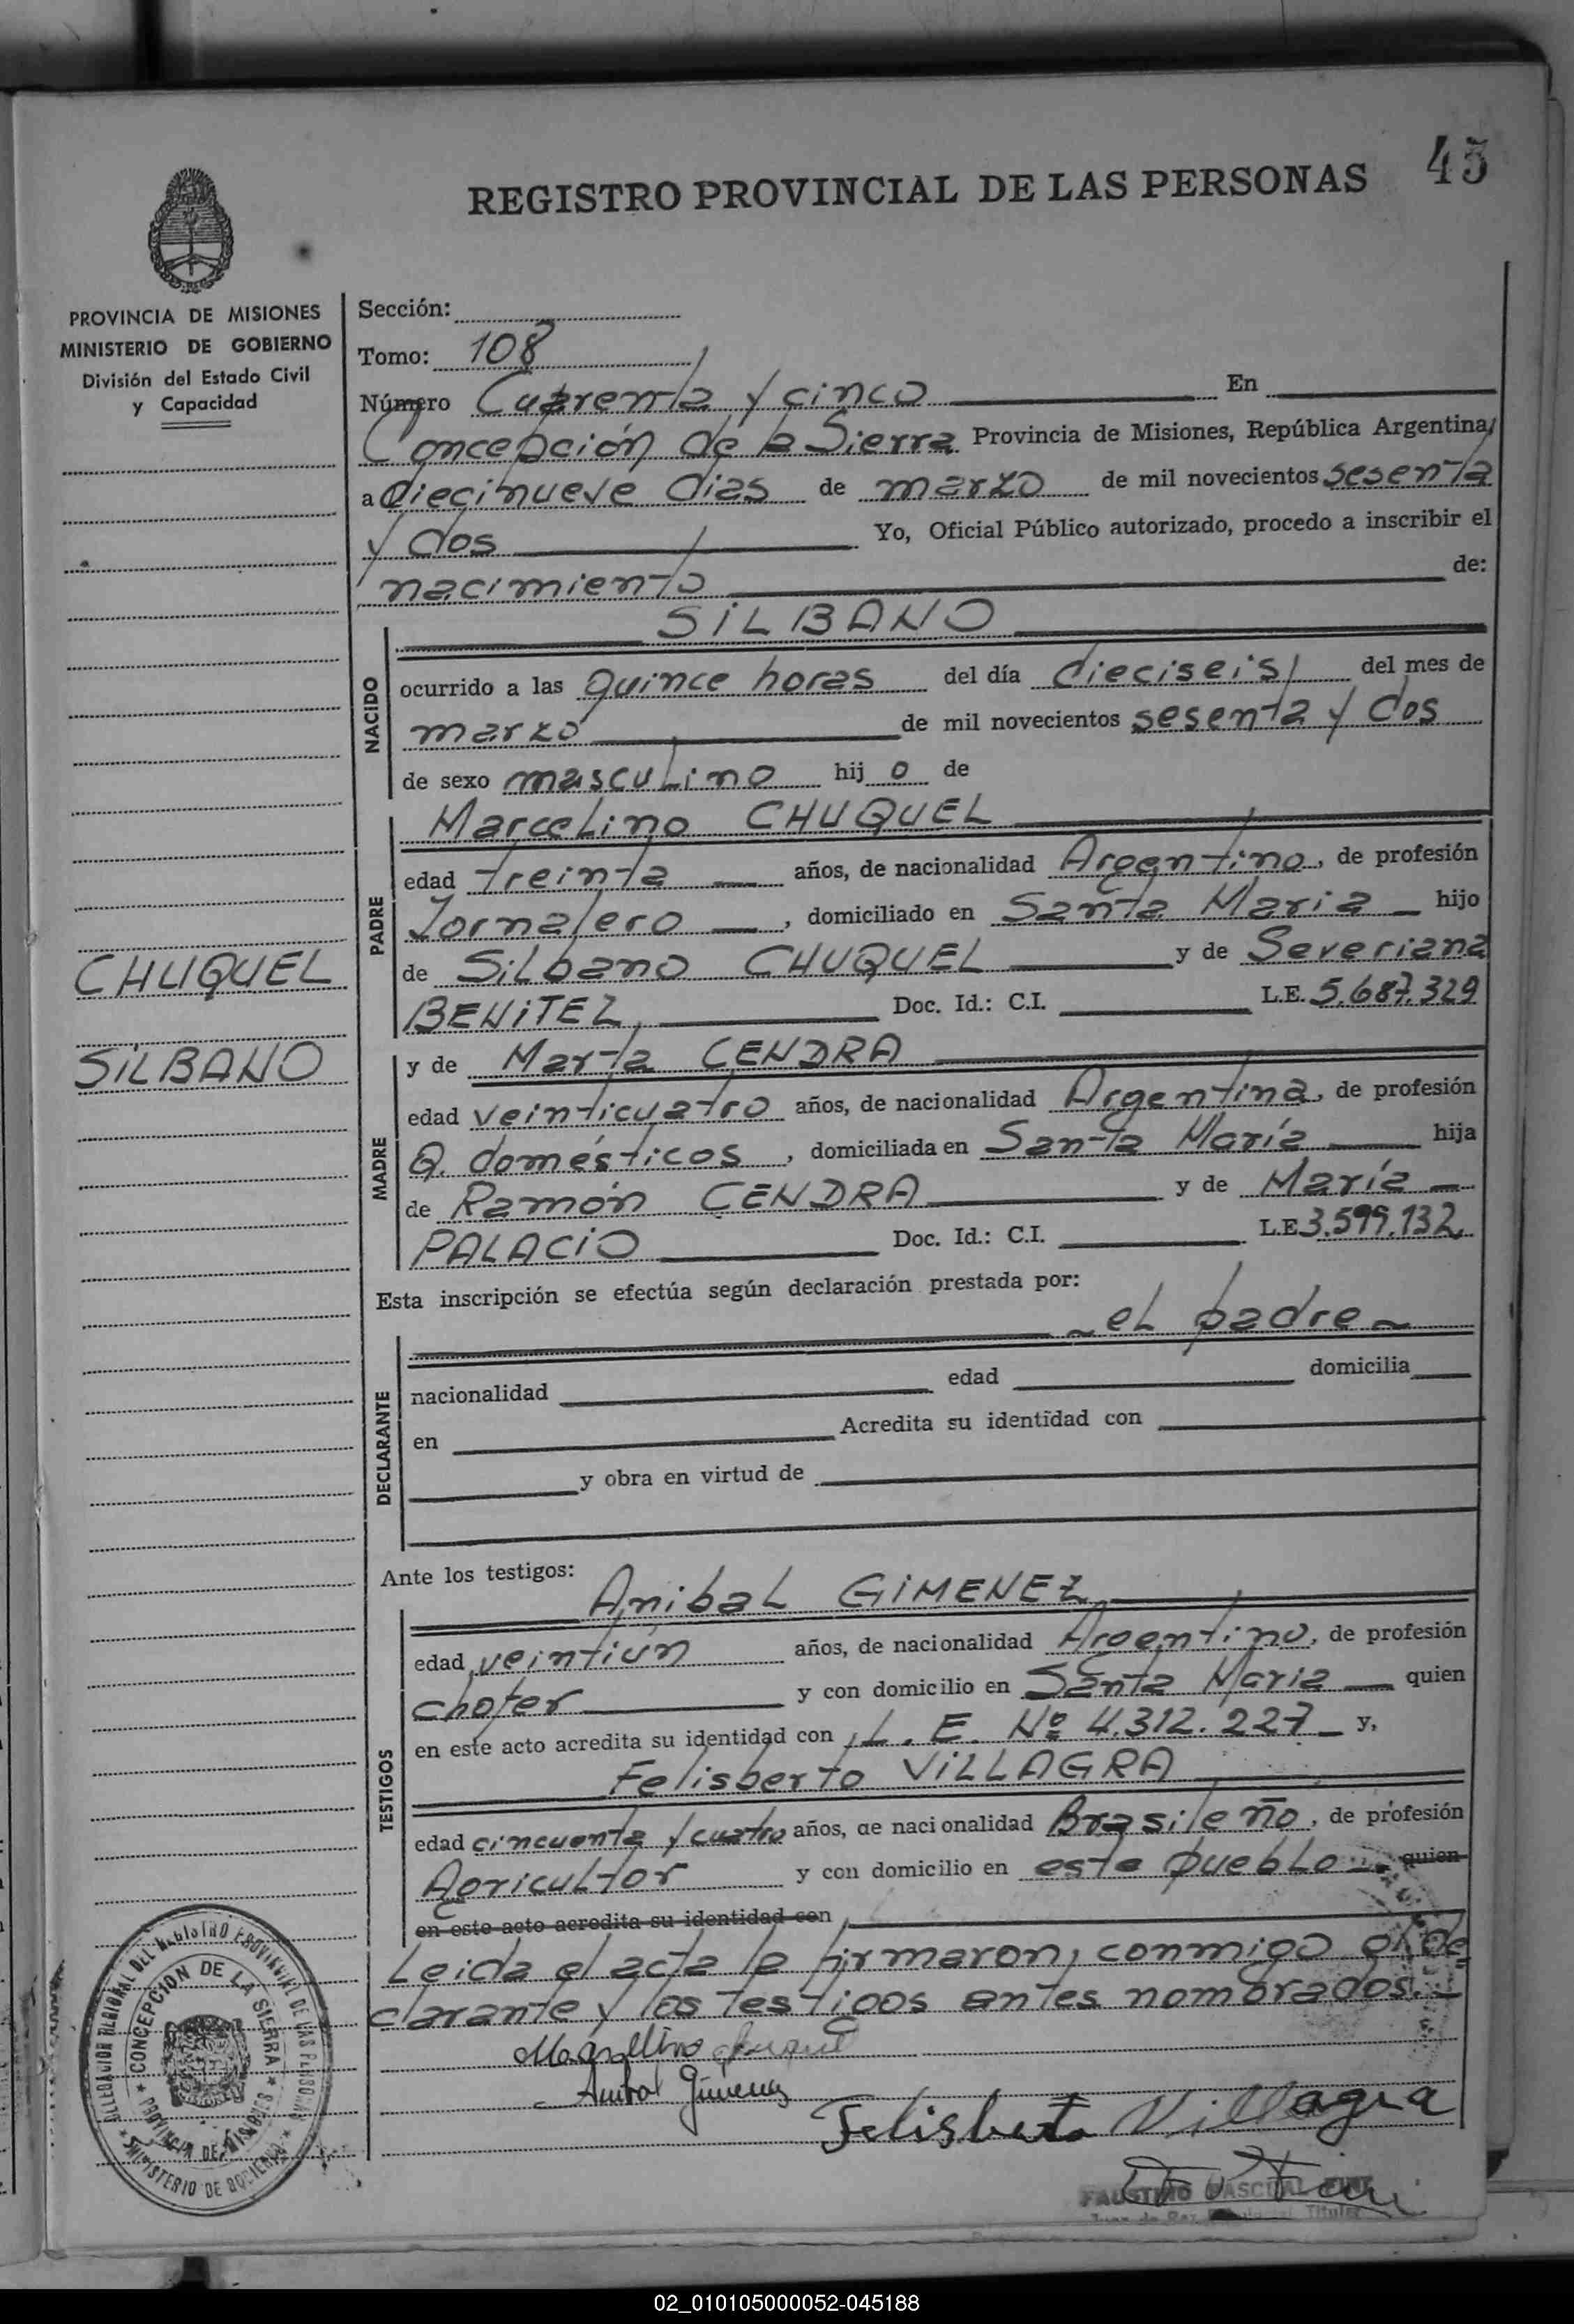 45
REGISTRO PROVINCIAL DE LAS PERSONAS
PROVINCIA DE MISIONES
MINISTERIO DE GOBIERNO
División del Estado Civil
y Capacidad
CHUQUEL
SILBANO
Sección:
Tomo: 108
Número Cuarenta y cinco En
Concepción de la Sierra Provincia de Misiones, República Argentina,
a diecinueve dias de marzo de mil novecientos sesenta
y dos Yo, Oficial Público autorizado, procedo a inscribir el
nacimiento de:
SILBANO
NACIDO
ocurrido a las quince horas del día dieciseis del mes de
marzo de mil novecientos sesenta y dos
de sexo masculino hij o de
Marcelino CHUQUEL
PADRE
edad treinta años, de nacionalidad Argentino, de profesión
Jornalero, domiciliado en Santa Maria hijo
de Silbano CHUQUEL y de Severiana
BENITEZ Doc. Id.: C.I. L.E. 5.687.329
MADRE
y de Marta CENDRA
edad veinticuatro años, de nacionalidad Argentina, de profesión
Q. domésticos, domiciliada en Santa María hija
de Ramón CENDRA y de María
PALACIO Doc. Id.: C.I. L.E. 3.599.132
Esta inscripción se efectúa según declaración prestada por:
el padre
DECLARANTE
nacionalidad edad domicilia
en Acredita su identidad con
y obra en virtud de
Ante los testigos:
Anibal GIMENEZ
TESTIGOS
edad veintiún años, de nacionalidad Argentino, de profesión
chofer y con domicilio en Santa Maria quien
en este acto acredita su identidad con L. E. Nº 4.312.227 y,
Felisberto VILLAGRA
edad cincuenta y cuatro años, de nacionalidad Brasileño, de profesión
Agricultor y con domicilio en este pueblo quien
en este acto acredita su identidad con
Leida el acta la firmaron, conmigo el de
clarante y los testigos antes nombrados.
Anibal Gimenez
Felisberto Villagra
FAUSTINO PASCUAL
Juez de Paz Titular
DELEGACION REGIONAL DEL REGISTRO PROVINCIAL DE LAS PERSONAS
CONCEPCION DE LA SIERRA
PROVINCIA DE MISIONES
MINISTERIO DE GOBIERNO
02_010105000052-045188